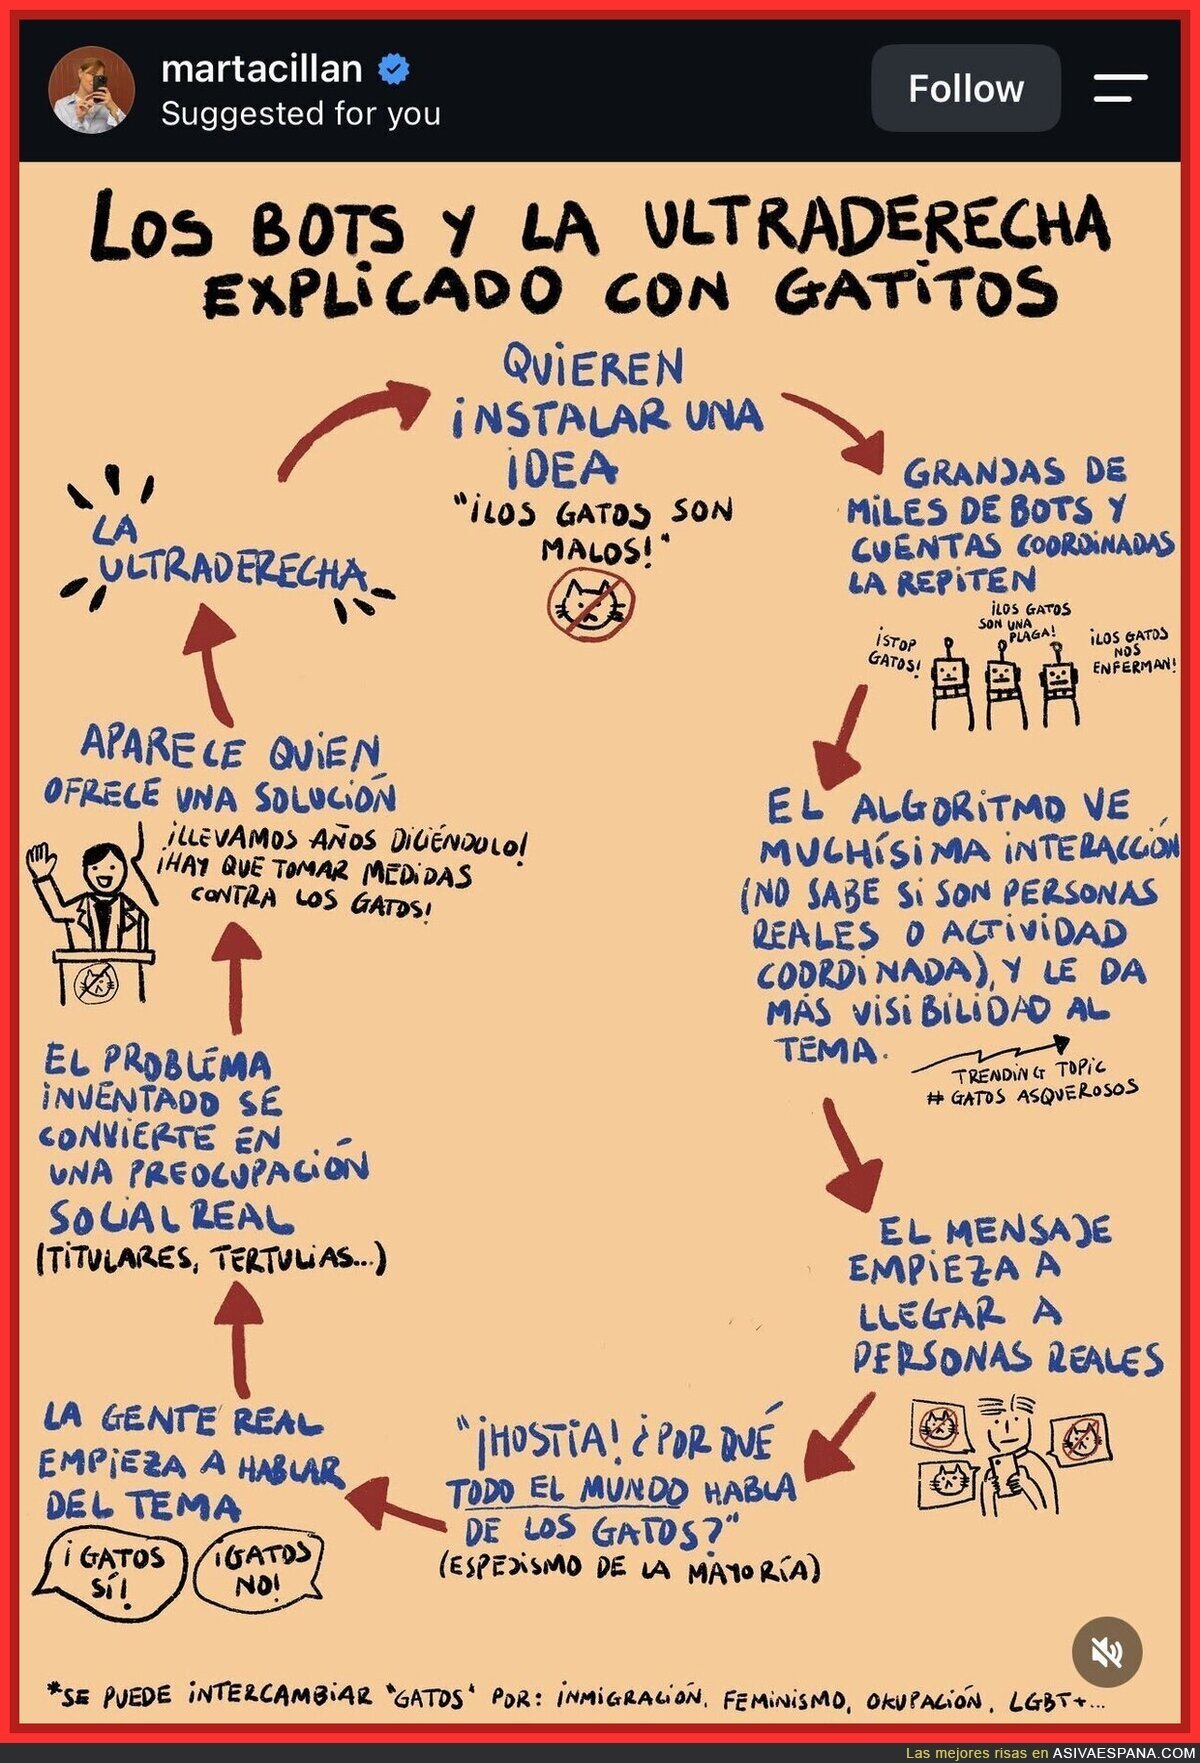 martacillan
Suggested for you
Follow
LOS BOTS Y LA ULTRADERECHA
EXPLICADO CON GATITOS
QUIEREN
INSTALAR UNA
IDEA
"¡LOS GATOS SON
MALOS!"
GRANJAS DE
MILES DE BOTS Y
CUENTAS COORDINADAS
LA REPITEN
¡STOP
GATOS!
¡LOS GATOS
SON UNA
PLAGA!
¡LOS GATOS
NOS
ENFERMAN!
EL ALGORITMO VE
MUCHÍSIMA INTERACCIÓN
(NO SABE SI SON PERSONAS
REALES O ACTIVIDAD
COORDINADA), Y LE DA
MÁS VISIBILIDAD AL
TEMA.
TRENDING TOPIC
# GATOS ASQUEROSOS
EL MENSAJE
EMPIEZA A
LLEGAR A
PERSONAS REALES
"¡HOSTIA! ¿POR QUÉ
TODO EL MUNDO HABLA
DE LOS GATOS?"
(ESPEJISMO DE LA MAYORÍA)
LA GENTE REAL
EMPIEZA A HABLAR
DEL TEMA
¡GATOS
SÍ!
¡GATOS
NO!
EL PROBLEMA
INVENTADO SE
CONVIERTE EN
UNA PREOCUPACIÓN
SOCIAL REAL
(TITULARES, TERTULIAS...)
APARECE QUIEN
OFRECE UNA SOLUCIÓN
¡LLEVAMOS AÑOS DICIÉNDOLO!
¡HAY QUE TOMAR MEDIDAS
CONTRA LOS GATOS!
LA
ULTRADERECHA
*SE PUEDE INTERCAMBIAR "GATOS" POR: INMIGRACIÓN, FEMINISMO, OKUPACIÓN, LGBT+...
Las mejores risas en ASIVAESPANA.COM